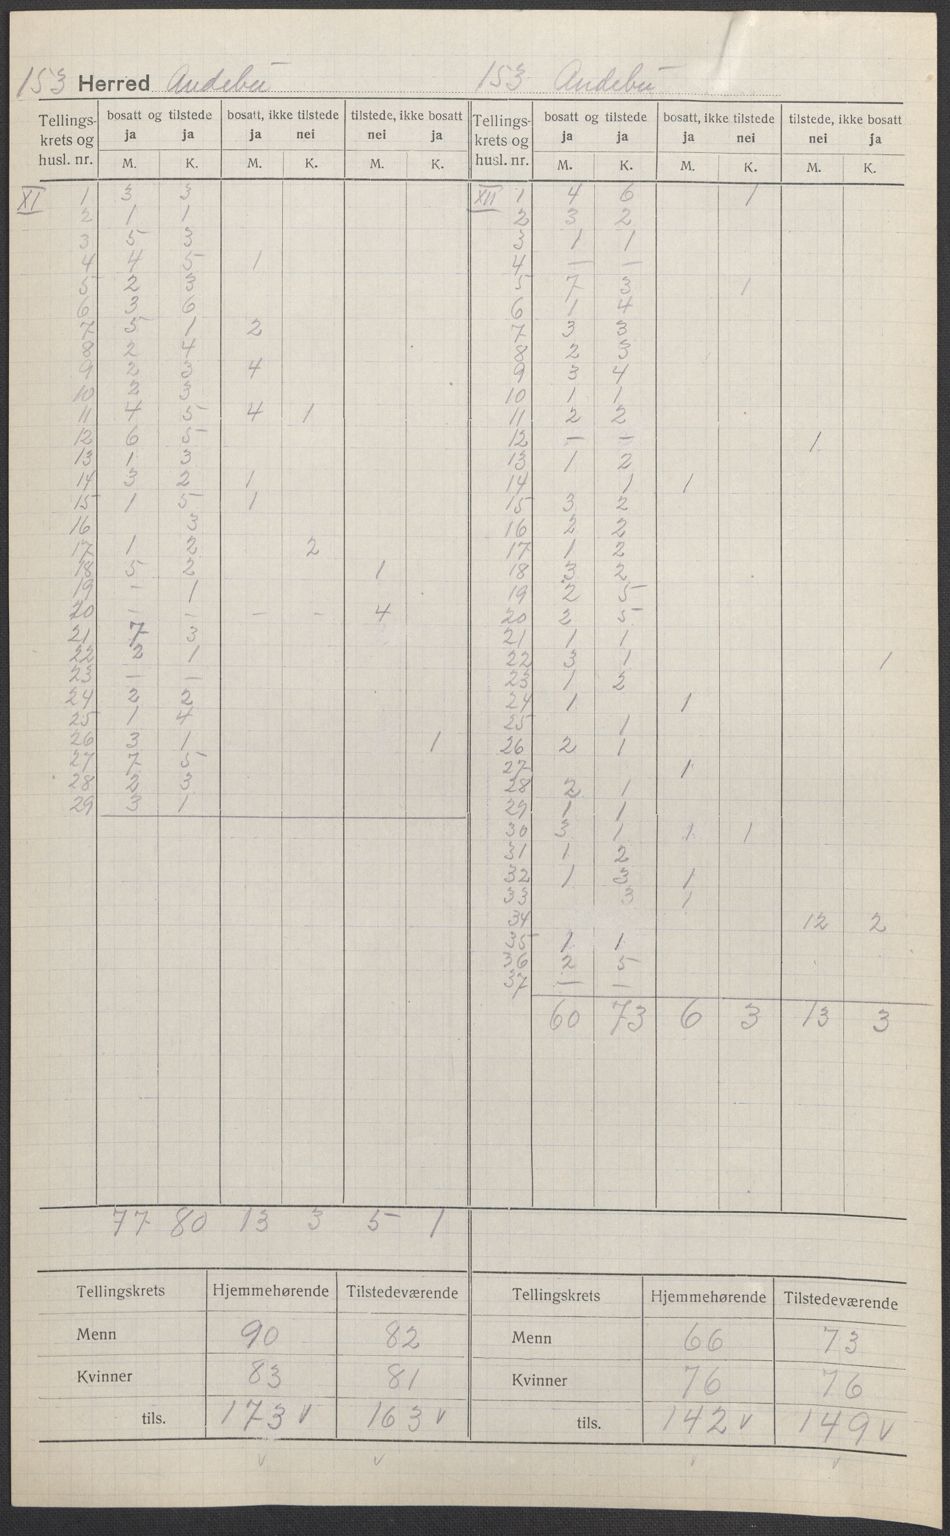 153 Herred Andebu 153 Andebu
Tellings- krets og husl. nr. | bosatt og tilstede | bosatt, ikke tilstede | tilstede, ikke bosatt | Tellings- krets og husl. nr. | bosatt og tilstede | bosatt, ikke tilstede | tilstede, ikke bosatt
ja ja ja nei nei ja | ja ja ja nei nei ja
M. K. M. K. M. K. | M. K. M. K. M. K.
XI 1 3 3 | XII 1 4 6 1
2 1 1 | 2 3 2
3 5 3 | 3 1 1
4 4 5 1 | 4 — —
5 2 3 | 5 7 3 1
6 3 6 | 6 1 4
7 5 1 2 | 7 3 3
8 2 4 | 8 2 3
9 2 3 4 | 9 3 4
10 2 3 | 10 1 1
11 4 5 4 1 | 11 2 2
12 6 5 | 12 — — 1
13 1 3 | 13 1 2
14 3 2 1 | 14 1 1
15 1 5 1 | 15 3 2
16 3 | 16 2 2
17 1 2 2 | 17 1 2
18 5 2 1 | 18 3 2
19 — 1 | 19 2 5
20 — — — — 4 | 20 2 5
21 7 3 | 21 1 1
22 2 1 | 22 3 1 1
23 — — | 23 1 2
24 2 2 | 24 1 1
25 1 4 | 25 1
26 3 1 1 | 26 2 1
27 7 5 | 27 1
28 2 3 | 28 2 1
29 3 1 | 29 1 1
30 3 1 1 1
31 1 2
32 1 3 1
33 3 1
34 12 2
35 1 1
36 2 5
37 — —
60 73 6 3 13 3
77 80 13 3 5 1
Tellingskrets Hjemmehørende Tilstedeværende | Tellingskrets Hjemmehørende Tilstedeværende
Menn 90 82 | Menn 66 73
Kvinner 83 81 | Kvinner 76 76
tils. 173 v 163 v | tils. 142 v 149 v
v v v v